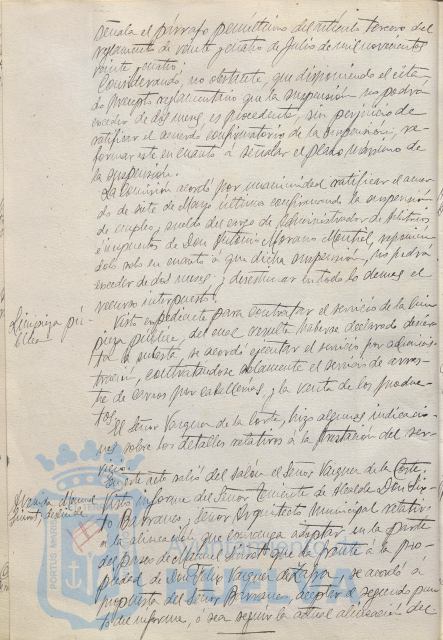 señala el párrafo penúltimo del artículo tercero del
reglamento de veinte y cuatro de Julio de mil novecientos
veinte y cuatro;
Considerando, no obstante, que disponiendo el cita-
do precepto reglamentario que la suspensión no podrá
exceder de dos meses, es procedente, sin perjuicio de
ratificar el acuerdo confirmatorio de la suspensión, re-
formar este en cuanto á señalar el plazo máximo de
la suspensión.
La Comisión acordó por unanimidad ratificar el acuer-
do de siete de Mayo último confirmando la suspensión
de empleo y sueldo del cargo de Administrador de Arbitrios
é impuestos de Don Antonio Morano Montiel,
solo en cuanto á que dicha suspensión, no podrá
exceder de dos meses y desestimar en todo lo demas el
recurso interpuesto.
Limpieza pú-
blica
Visto expediente para contratar el servicio de la lim-
pieza pública, del cual resulta haberse declarado desier-
ta la subasta, se acordó ejecutar el servicio por adminis-
tración, contratándose solamente el servicio de arras-
tre de carros por caballerías, y la venta de los produc-
tos.
El Señor Vazquez de la Corte, hizo algunas indicacio-
nes sobre los detalles relativos á la prestación del ser-
vicio.
En este acto salió del salón el Señor Vazquez de la Corte.
Visto informe del Señor Teniente de Alcalde Don
Barranco, y Señor Arquitecto Municipal relativo
á la alineación que convenga adoptar en la parte
del paseo de que dá frente á la pro-
piedad de Don Felix Vazquez de Zafra, se acordó á
propuesta del Señor Barranco, aceptar el segundo pun-
to del informe, o sea seguir la actual alineación del
PORTUS